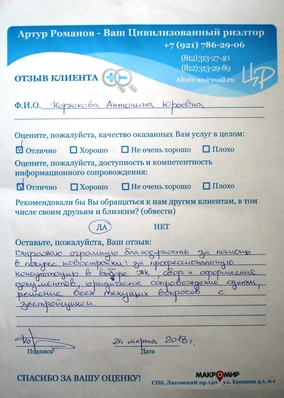 Артур Романов - Ваш Цивилизованный риэлтор
+7 (921) 786-29-06
(812)313-27-40
(812)313-29-89
Altair-as@mail.ru
ЦР
ОТЗЫВ КЛИЕНТА
Ф.И.О. Корюкова Антонина Юрьевна
Оцените, пожалуйста, качество оказанных Вам услуг в целом:
Отлично Хорошо Не очень хорошо Плохо
Оцените, пожалуйста, доступность и компетентность
информационного сопровождения:
Отлично Хорошо Не очень хорошо Плохо
Рекомендовали бы Вы обращаться к нам другим клиентам, в
том числе своим друзьям и близким? (обвести)
ДА НЕТ
Оставьте, пожалуйста, Ваш отзыв:
Выражаю огромную благодарность за помощь
в покупке новостройки: за профессиональную
консультацию в выборе ЖК, сбор и оформление
документов, юридическое сопровождение сделки,
решение всех текущих вопросов с
застройщиком.
24 марта 2018г.
Подпись Дата
СПАСИБО ЗА ВАШУ ОЦЕНКУ!
МАКРОМИР
СПб, Лиговский пр.140 ул. Есенина д.1, к.1